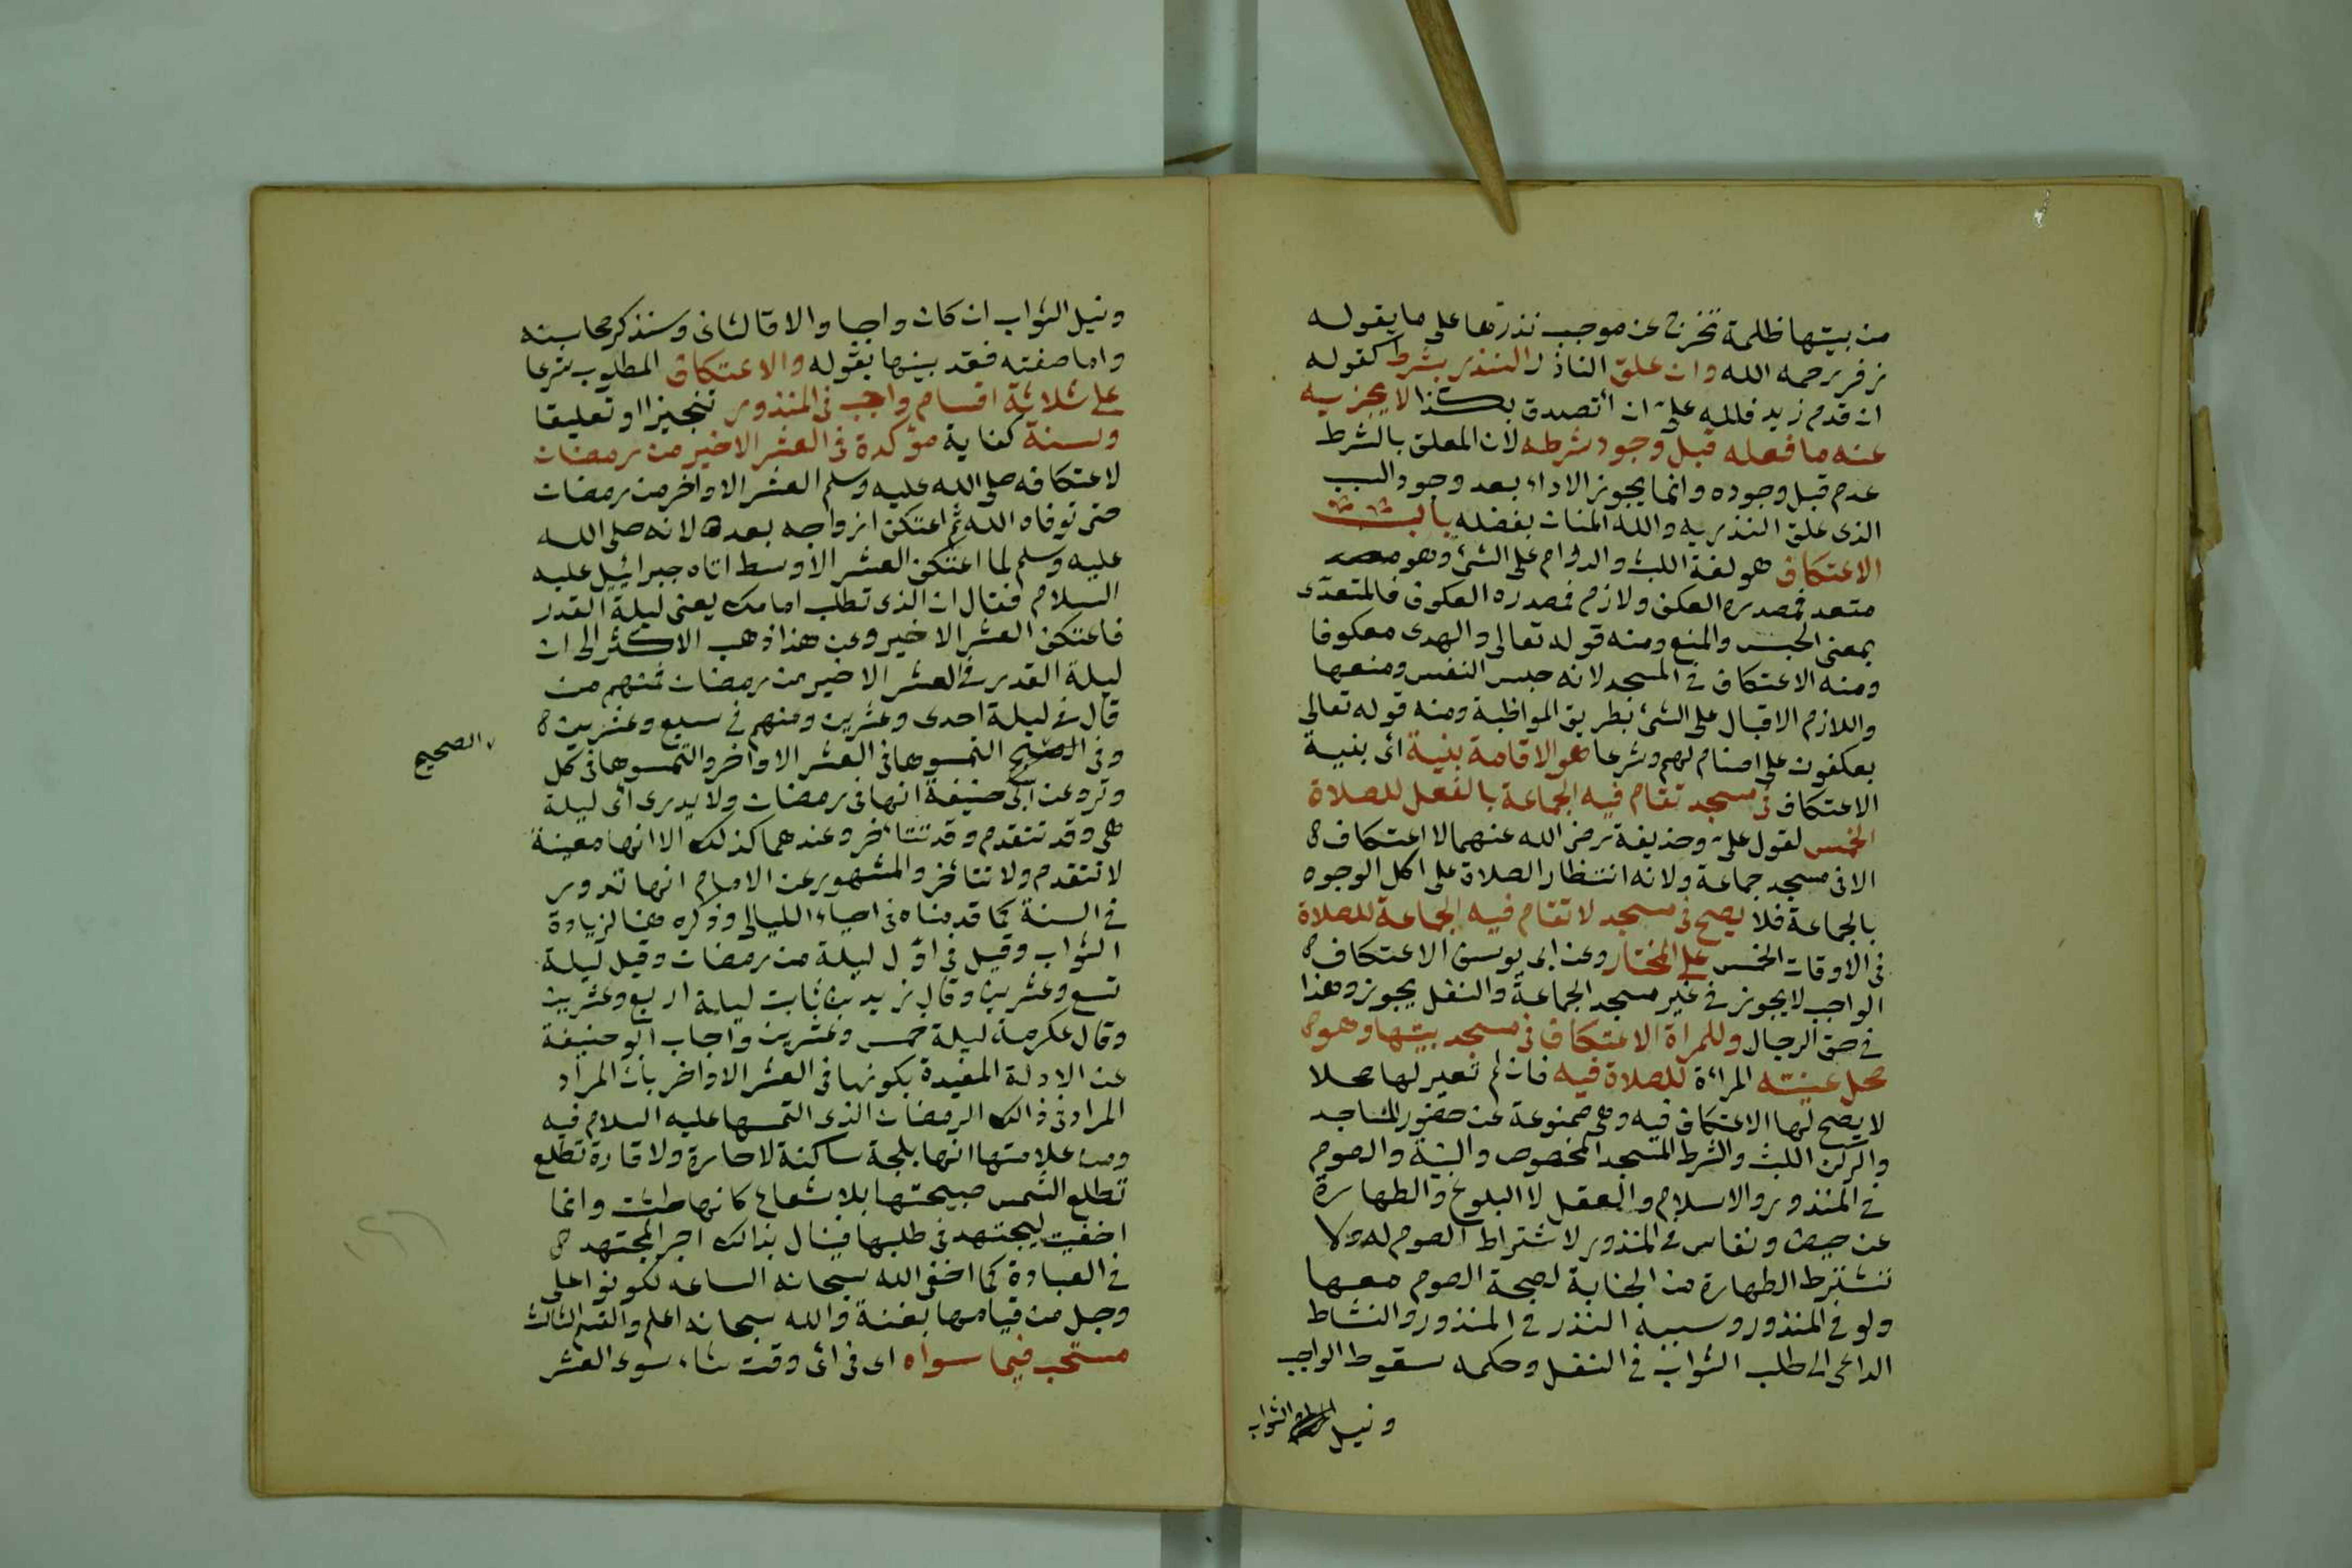 من بيتها ظلمة تخرج عن موجب نذرها على ما يقوله
زفر رحمه الله وان علق الناذر النذر بشرط كقوله
ان قدم زيد فلله علىّ ان أتصدق بكذا لا يجزيه
عنه ما فعله قبل وجود شرطه لان المعلق بالشرط
عدم قبل وجوده وانما يجوز الاداء بعد وجود السبب
الذى علق النذر به والله المنان بفضله باب
الاعتكاف هو لغة اللبث والدوام على الشئ وهو
متعد فمصدره العكف ولازم فمصدره العكوف فالمتعدّى
بمعنى الحبس والمنع ومنه قوله تعالى والهدى معكوفا
ومنه الاعتكاف فى المسجد لانه حبس النفس ومنعها
واللازم الاقبال على الشئ بطريق المواظبة ومنه قوله تعالى
يعكفون على اصنام لهم وشرعا هو الاقامة بنية أى بنية
الاعتكاف فى مسجد تقام فيه الجماعة بالفعل للصلاة
الخمس لقول علىّ وحذيفة رضى الله عنهما لا اعتكاف
الا فى مسجد جماعة ولانه انتظار الصلاة على اكل الوجوه
بالجماعة فلا يصح فى مسجد لا تقام فيه الجماعة للصلاة
فى الاوقات الخمس على المختار وعن ابى يوسف الاعتكاف
الواجب لا يجوز فى غير مسجد الجماعة والنفل يجوز وهذا
فى حق الرجال وللمرأة الاعتكاف فى مسجد بيتها وهو
محل عينته المراءة للصلاة فيه فان لم تعير لها محلا
لا يصح لها الاعتكاف فيه وهى ممنوعة عن حضور المساجد
والركن اللبث والشرط المسجد المخصوص والنية والصوم
فى المنذور والاسلام والعقل لا البلوغ والطهارة
عن حيض ونفاس فى المنذور لاشتراط الصوم له ولا
تشترط الطهارة من الجنابة لصحة الصوم معها
ولو فى المنذور وسببه النذر فى المنذور والنشاط
الداعى الى طلب الثواب فى النفل وحكمه سقوط الواجب
ونيل الثواب
ونيل الثواب ان كان واجبا والا فالثانى وسنذكر محاسنه
واما صفته فقد بينها بقوله والاعتكاف المطلوب شرعا
على ثلاثة اقسام واجب فى المنذور تنجيزا او تعليقا
وسنة كفاية مؤكدة فى العشر الاخير من رمضان
لاعتكافه صلى الله عليه وسلم العشر الاواخر من رمضان
حتى توفاه الله ثم اعتكف ازواجه بعده لانه صلى الله
عليه وسلم لما اعتكف العشر الاوسط اتاه جبرائيل عليه
السلام فقال ان الذى تطلب امامك يعنى ليلة القدر
فاعتكف العشر الاخير وعن هذا ذهب الاكثر الى ان
ليلة القدر فى العشر الاخير من رمضان فمنهم من
قال فى ليلة احدى وعشرين ومنهم فى سبع وعشرين
وفى الصحيح التمسوها فى العشر الاواخر والتمسوها فى كل
الصحيح
وتر وعن ابى حنيفة انها فى رمضان ولا يدرى أى ليلة
هى وقد تتقدم وقد تتأخر وعندهما كذلك الا انها معينة
لا تتقدم ولا تتأخر والمشهور عن الامام انها تدور
فى السنة كما قدمناه فى احياء الليالى وذكره هنا لزيادة
الثواب وقيل فى اوّل ليلة من رمضان وقيل ليلة
تسع وعشرين وقال زيد بن ثابت ليلة اربع وعشرين
وقال عكرمة ليلة خمس وعشرين واجاب ابو حنيفة
عن الادلة المفيدة بكونها فى العشر الاواخر بان المراد
المراد فى ذالك الرمضان الذى التمسها عليه السلام فيه
ومن علامتها انها بلجة ساكنة لا حارة ولا قارة تطلع
تطلع الشمس صبيحتها بلا شعاع كانها طست وانما
اخفيت ليجتهد فى طلبها فينال بذالك اجر المجتهد
فى العبادة كما اخفى الله سبحانه الساعه لكونوا على
وجل من قيامها بغتة والله سبحانه اعلم والقسم الثالث
مستحب فيما سواه اى فى اى وقت شاء سوى العشر